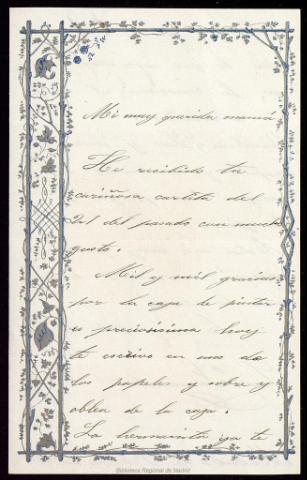 Mi muy querida mamá
He recibido tu
cariñosa cartita del
21 del pasado con mucho
gusto.
Mil y mil gracias
por la caja de pintar
es preciosisima hoy
te escrivo en uno de
los papeles y sobre y
oblea de la caja.
La hermanita ya te
Biblioteca Regional de Madrid